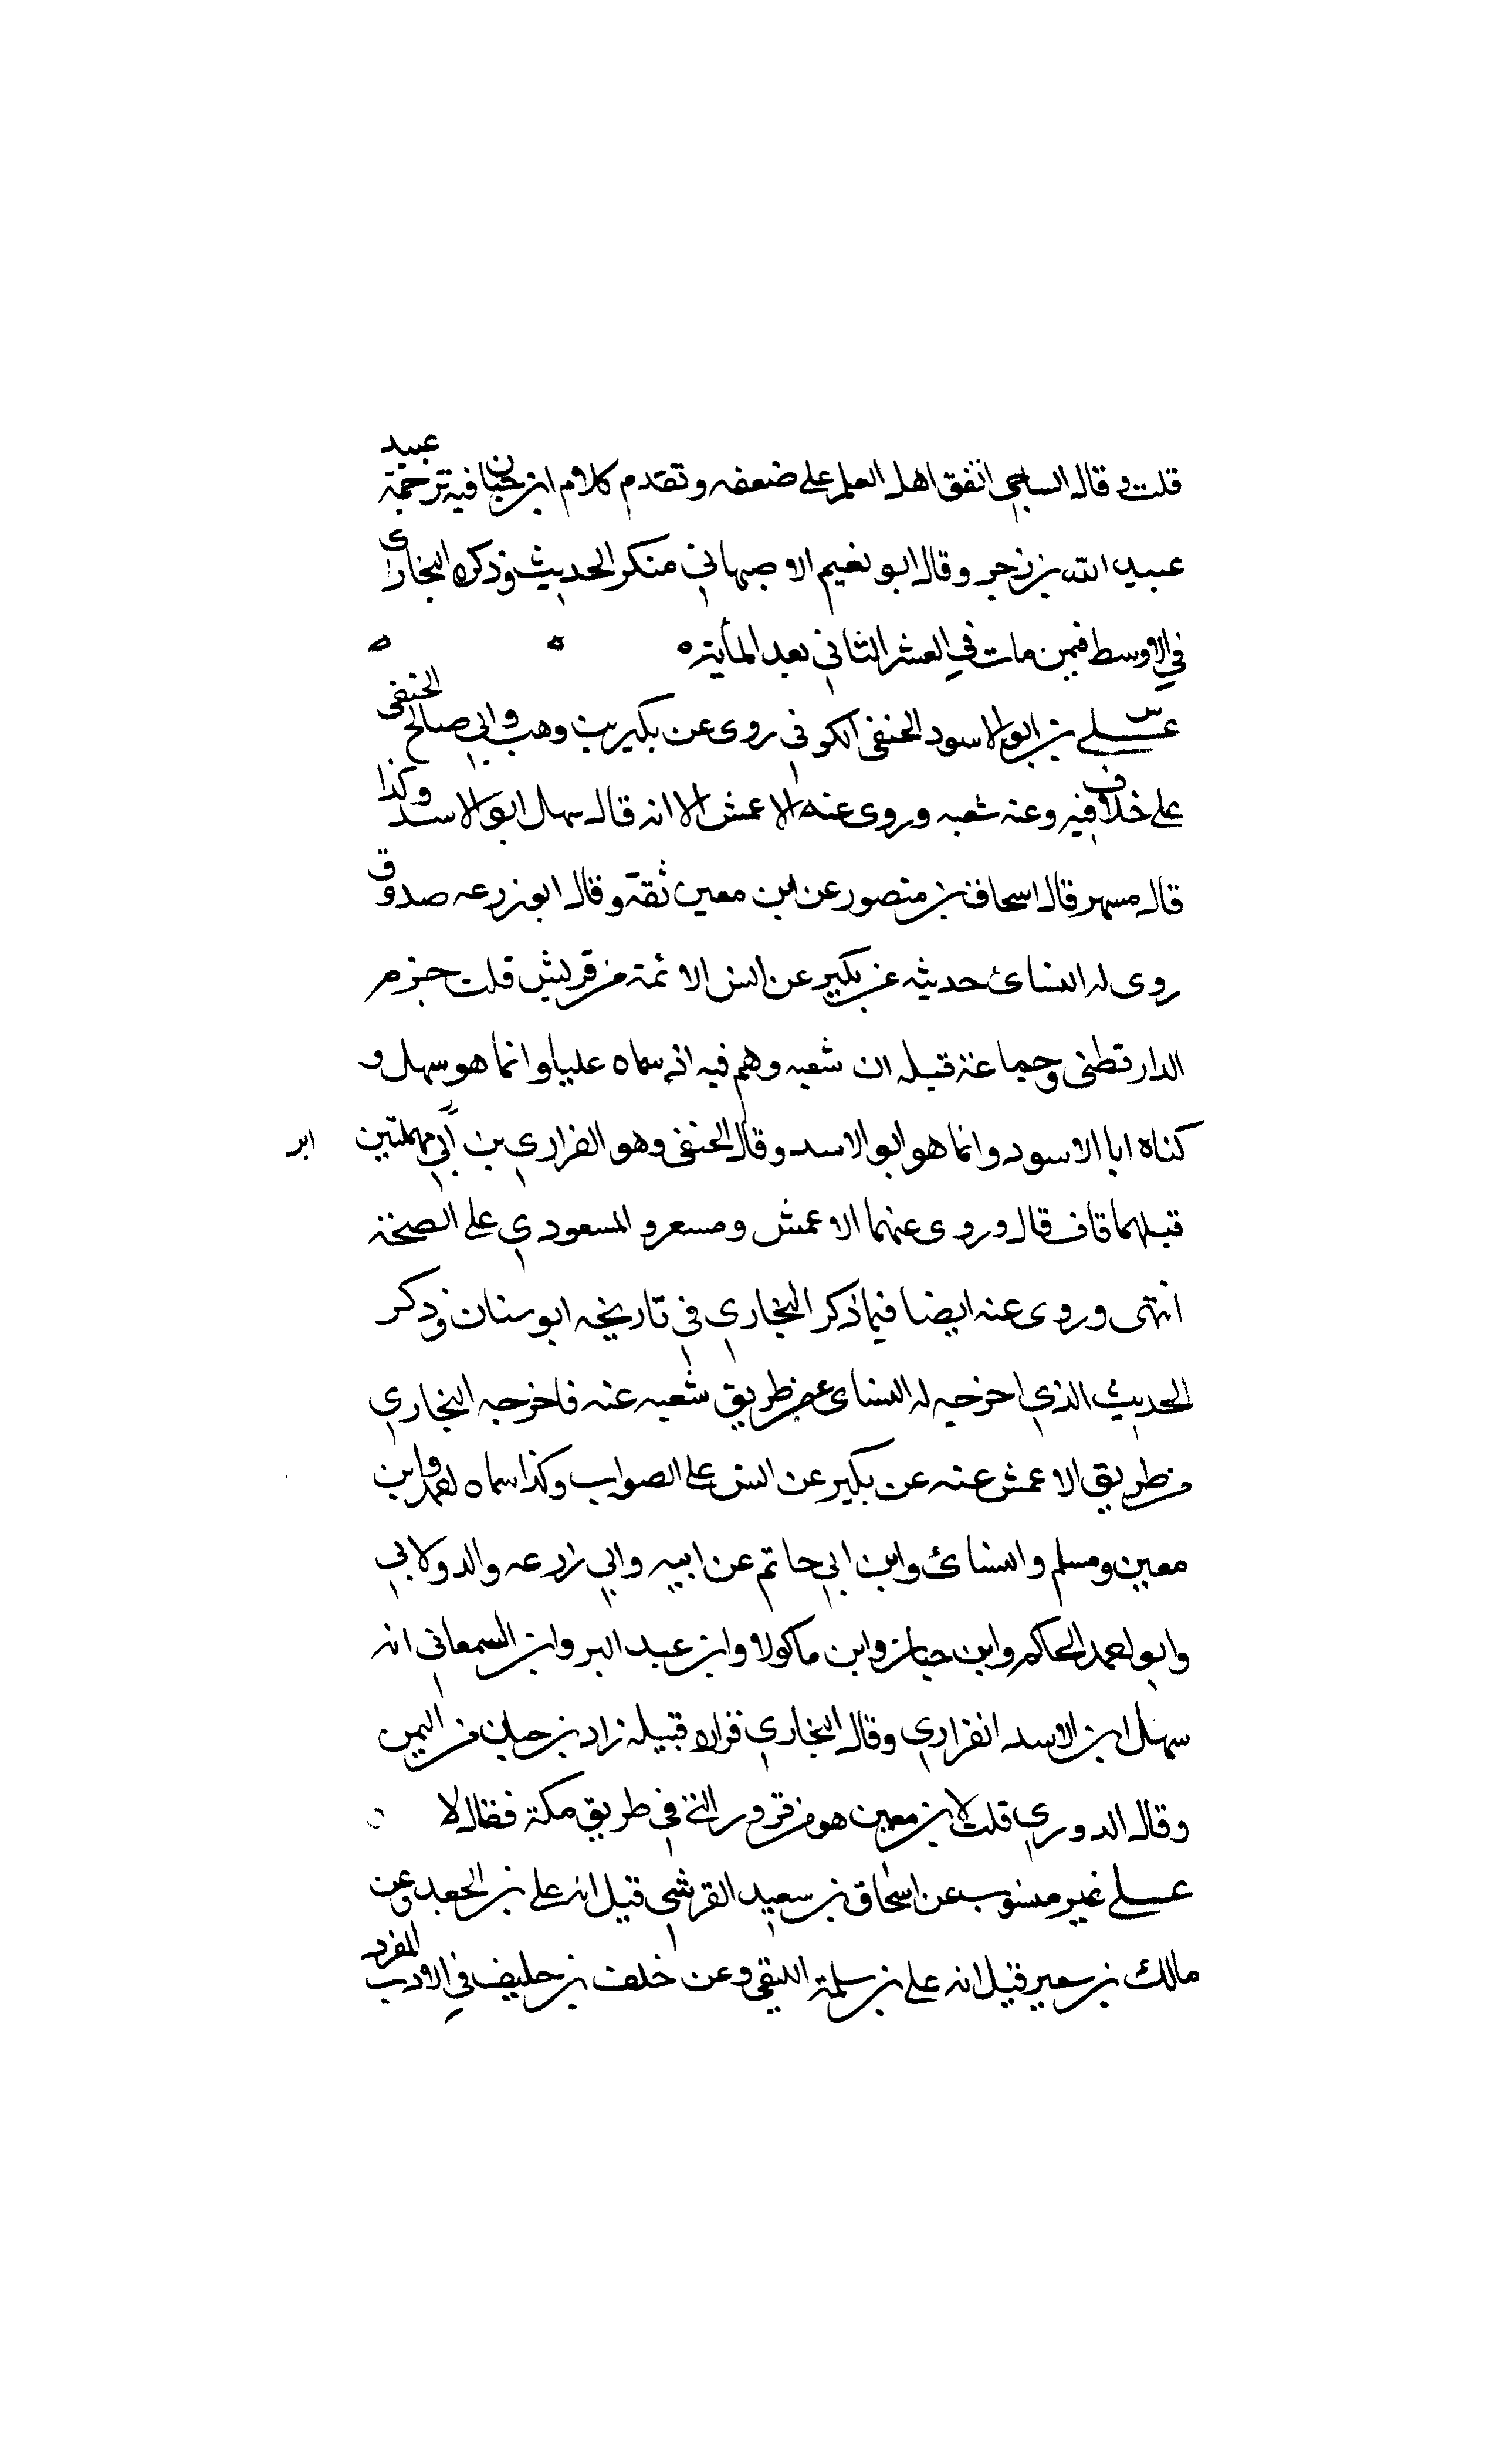 قلت وقال الساجي اتفق اهل العلم على ضعفه وتقدم كلام ابن حبان فيه ترجمة عبيد
عبيد الله بن زحر وقال ابو نعيم الاصبهاني منكر الحديث وذكره البخاري
في الاوسط فيمن مات في العشر الثاني بعد المأية ه ه ه
س علي بن ابو الاسود الحنفي الكوفي روى عن بكير بن وهب وابي صالح الحنفي
على خلاف فيه وعنه شعبه وروى عنه الاعمش الا انه قال سهل ابو الاسد وكذا
قال مسهر قال اسحاق بن منصور عن ابن معين ثقة وقال ابو زرعه صدوق
روى له النسائ حديثه عن بكير عن انس الائمة من قريش قلت جزم
الدارقطني وجماعة قبله ان شعبه وهم فيه انه سماه عليا وانما هو سهل و
كناه ابا الاسود وانما هو ابو الاسد وقال الحنفي وهو الفراري بن ابي مهملتين
ابر
قبلهما قاف قال وروى عنهما الاعمش ومسعر والمسعودي على الصخة
انتهى وروى عنه ايضا فيما ذكر البخاري في تاريخه ابو سنان وذكر
الحديث الذي اخرجه له النسائ عن طريق شعبه عنه فاخرجه البخاري
من طريق الاعمش عنه عن بكير عن انس على الصواب وكذا سماه احمد وابن
معين ومسلم والنسائ وابن ابي حاتم عن ابيه وابي زرعه والدولابي
وابو احمد الحاكم وابن حبان وابن ماكولا وابن عبد البر وابن السمعاني انه
سهل ابن الاسد الفراري وقال البخاري قرار قبيله زاد بن حبان من اليمن
وقال الدوري قلت لابن معين هو من قرور التي في طريق مكة فقال لا
علي غير منسوب عن اسحاق بن سعيد القرشي قيل انه علي بن الجعد وعن
مالك بن سعير قيل انه علي بن سلمة اللبقي وعن خلف بن خليف في الادب المفرد